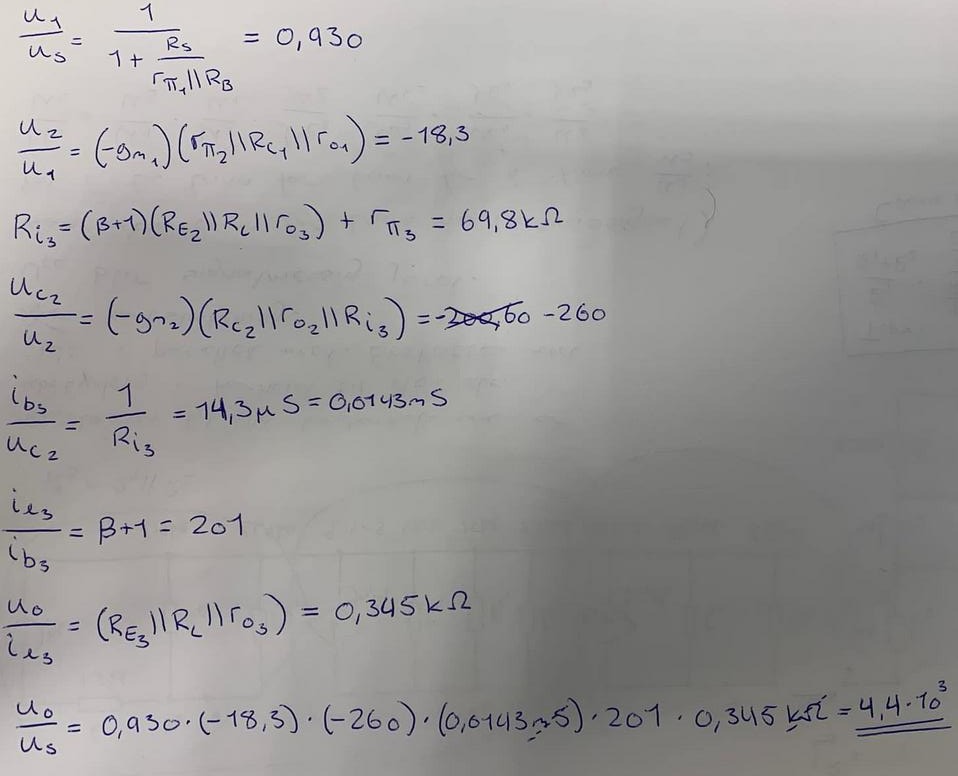 u₁/uₛ = 1/(1 + Rs/(rπ₁||RB)) = 0,930
u₂/u₁ = (-gm₁)(rπ₂||RC₁||ro₁) = -18,3
Ri₃ = (β+1)(RE₂||RL||ro₃) + rπ₃ = 69,8kΩ
uc₂/u₂ = (-gm₂)(RC₂||ro₂||Ri₃) = -260
ib₃/uc₂ = 1/Ri₃ = 14,3μS = 0,0143mS
ie₃/ib₃ = β+1 = 201
uo/ie₃ = (RE₃||RL||ro₃) = 0,345kΩ
uo/us = 0,930·(-18,3)·(-260)·(0,0143mS)·201·0,345kΩ = 4,4·10³